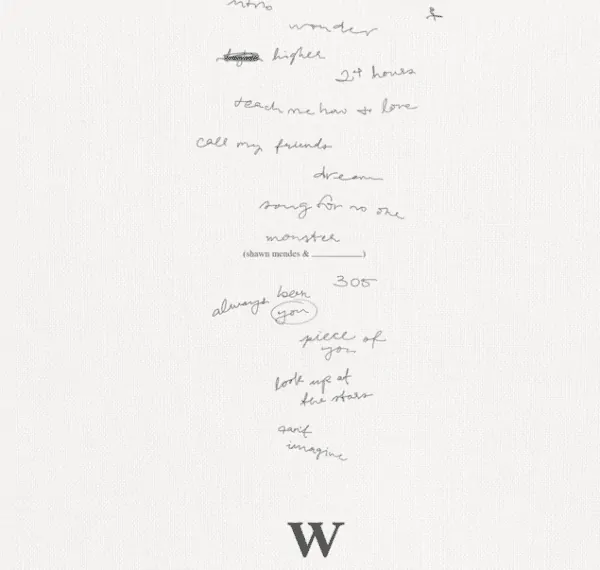 intro
wonder
higher
24 hours
teach me how to love
call my friends
dream
song for no one
monster
(shawn mendes & __________)
305
always been
you
piece of
you
look up at
the stars
can't
imagine
W